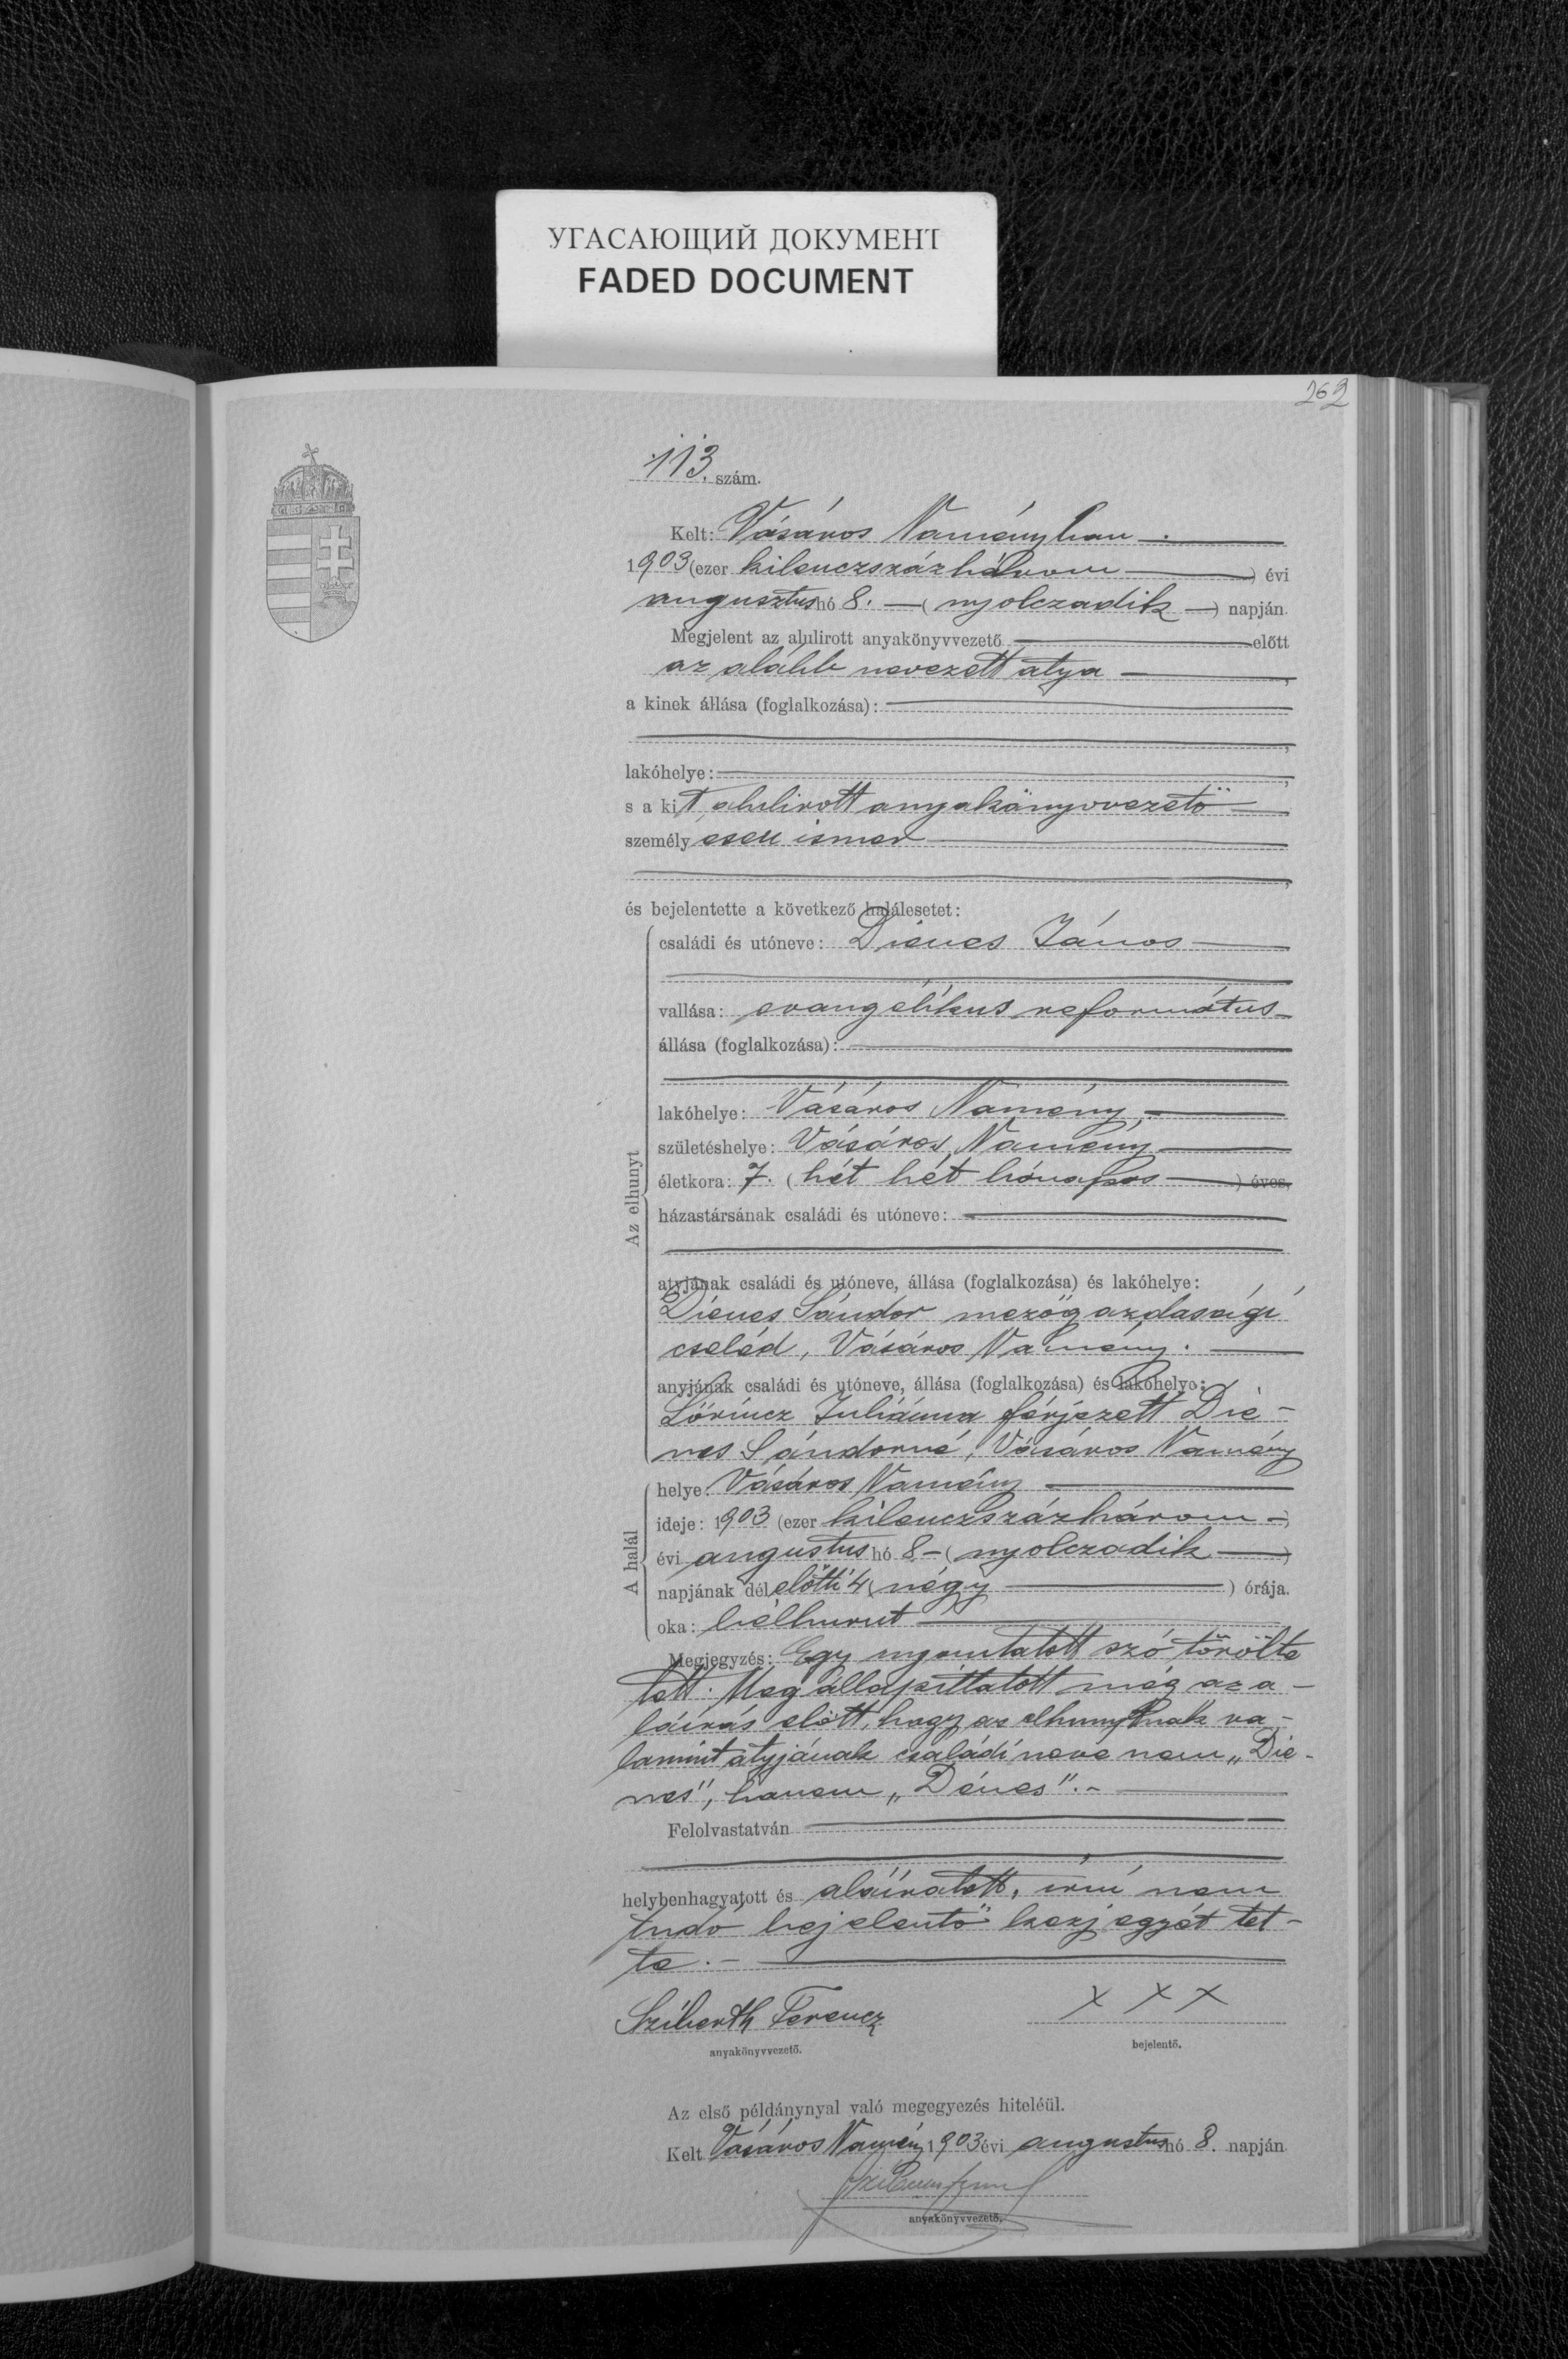 УГАСАЮЩИЙ ДОКУМЕНТ
FADED DOCUMENT
262
113. szám.
Kelt: Vásáros Naményban.
1903 (ezer kilenczszázhárom) évi
augusztus hó 8. (nyolczadik) napján
Megjelent az alulirott anyakönyvvezető előtt
az alább nevezett atya,
a kinek állása (foglalkozása):
lakóhelye:
s a kit alulirott anyakönyvvezető
személyesen ismer
és bejelentette a következő halálesetet:
Az elhunyt
családi és utóneve: Dienes János
vallása: evangélikus református
állása (foglalkozása):
lakóhelye: Vásáros Namény
születéshelye: Vásáros Namény
életkora: 7. (hét hét hónapos) éves,
házastársának családi és utóneve:
atyjának családi és utóneve, állása (foglalkozása) és lakóhelye:
Dienes Sándor mezőgazdasági
cseléd, Vásáros Namény.
anyjának családi és utóneve, állása (foglalkozása) és lakóhelye:
Lőrincz Juliánna férjezett Die-
nes Sándorné, Vásáros Namény
A halál
helye: Vásáros Namény
ideje: 1903 (ezer kilenczszázhárom)
évi augustus hó 8 (nyolczadik)
napjának délelőtti 4 (négy) órája.
oka: bélhurut
Megjegyzés: Egy nyomtatott szó törölte
tett. Meg állapíttatott még az a-
láirás előtt, hogy az elhunytnak va-
lamint atyjának családi neve nem „Die-
nes", hanem „Dénes".
Felolvastatván
helybenhagyatott és aláiratott, irni nem
tudó bejelentő kezjegyét tet-
te.
Sziberth Ferencz
anyakönyvvezető.
x x x
bejelentő.
Az első példánynyal való megegyezés hiteléül.
Kelt Vásáros Namény 1903 évi augustus hó 8. napján
anyakönyvvezető.